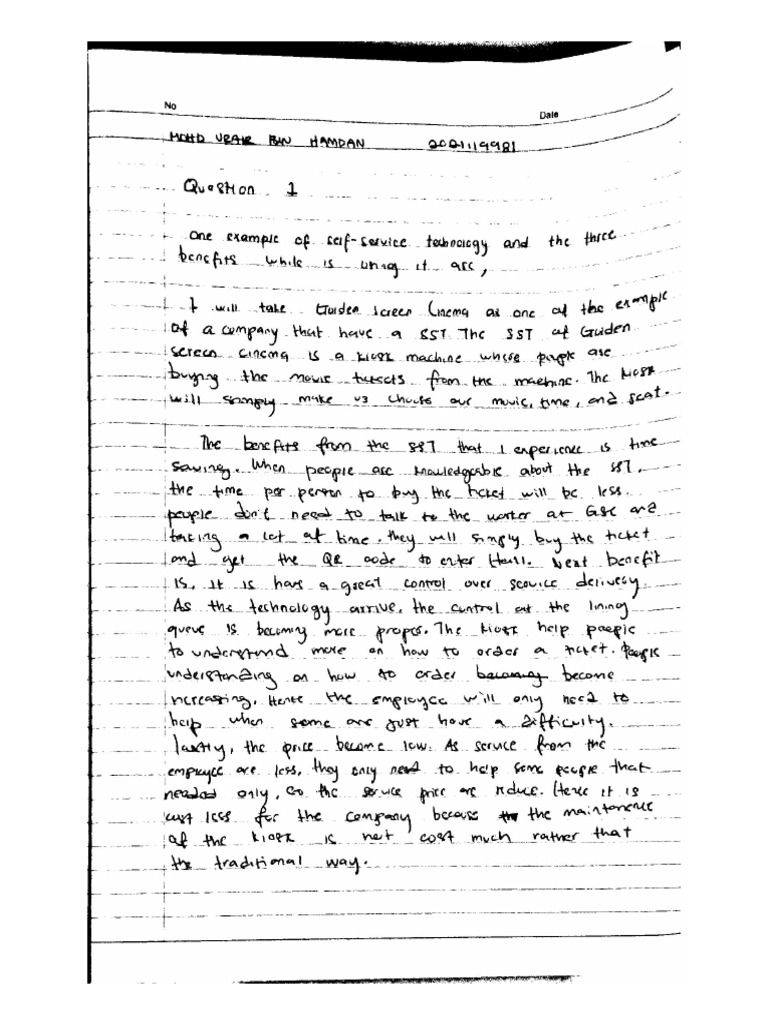 No
Date
MOHD UZAIR BIN HAMDAN 2021119981
Question 1
One example of self-service technology and the three
benefits while is using it are,
I will take Golden Screen Cinema as one of the example
of a company that have a SST. The SST of Golden
screen cinema is a kiosk machine where people are
buying the movie tickets from the machine. The kiosk
will simply make us choose our movie, time, and seat.
The benefits from the SST that I experience is time
saving. When people are knowledgeable about the SST,
the time per person to buy the ticket will be less.
people don't need to talk to the worker at GSC and
taking a lot of time. they will simply buy the ticket
and get the QR code to enter Hall. Next benefit
is, it is have a great control over service delivery.
As the technology arrive, the control of the lining
queue is becoming more proper. The kiosk help people
to understand more on how to order a ticket. People
understanding on how to order becoming become
increasing, Hence the employee will only need to
help when some are just have a difficulty.
lastly, the price become low. As service from the
employee are less, they only need to help some people that
needed only, so the service price are reduce. Hence it is
cost less for the company because the the maintenance
of the kiosk is not cost much rather that
the traditional way.